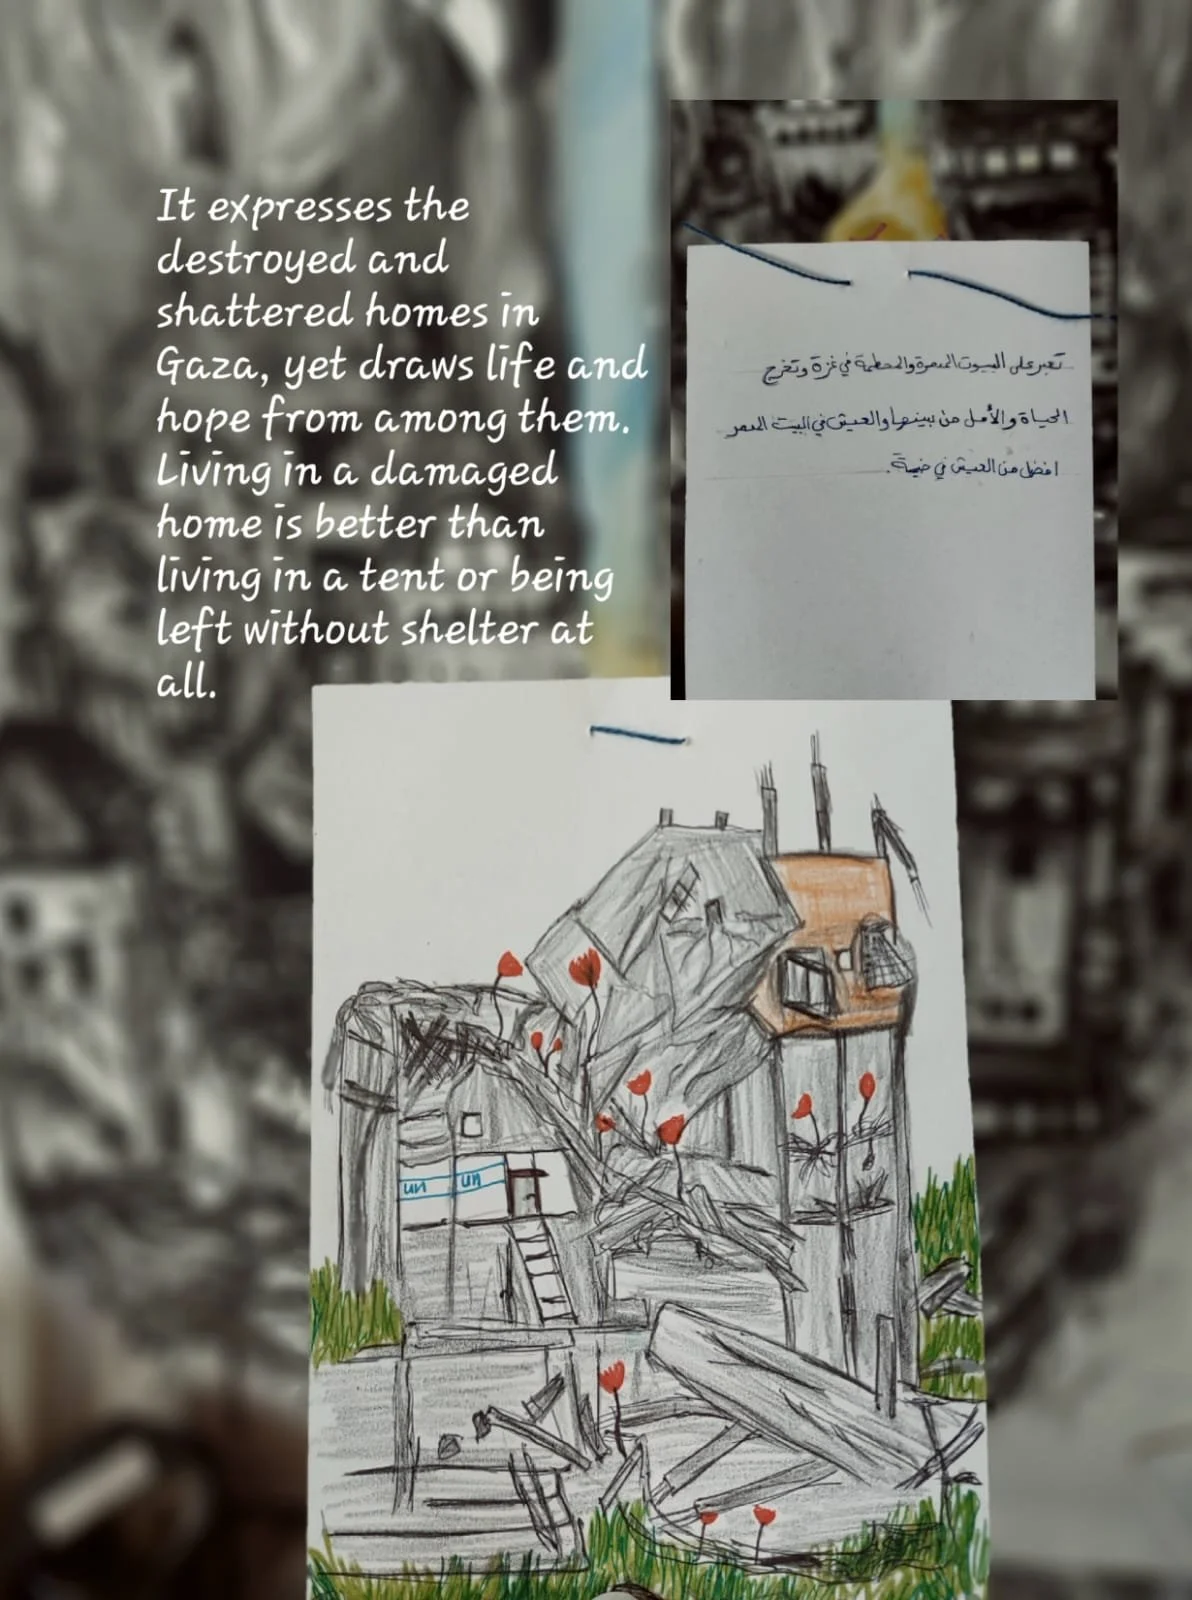 It expresses the
destroyed and
shattered homes in
Gaza, yet draws life and
hope from among them.
Living in a damaged
home is better than
living in a tent or being
left without shelter at
all.
تعبر على البيوت المدمرة والمحطمة في غزة وتخرج
الحياة والأمل من بينها والعيش في البيت المدمر
افضل من العيش في خيمة.
un un